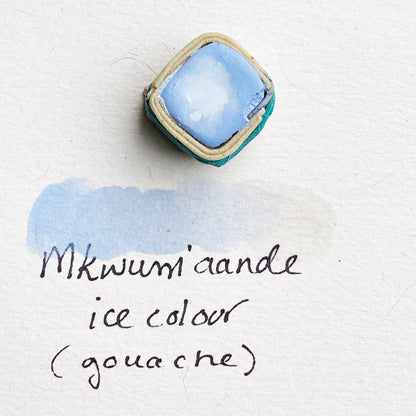 Mkwumi'aande
ice colour
(gouache)